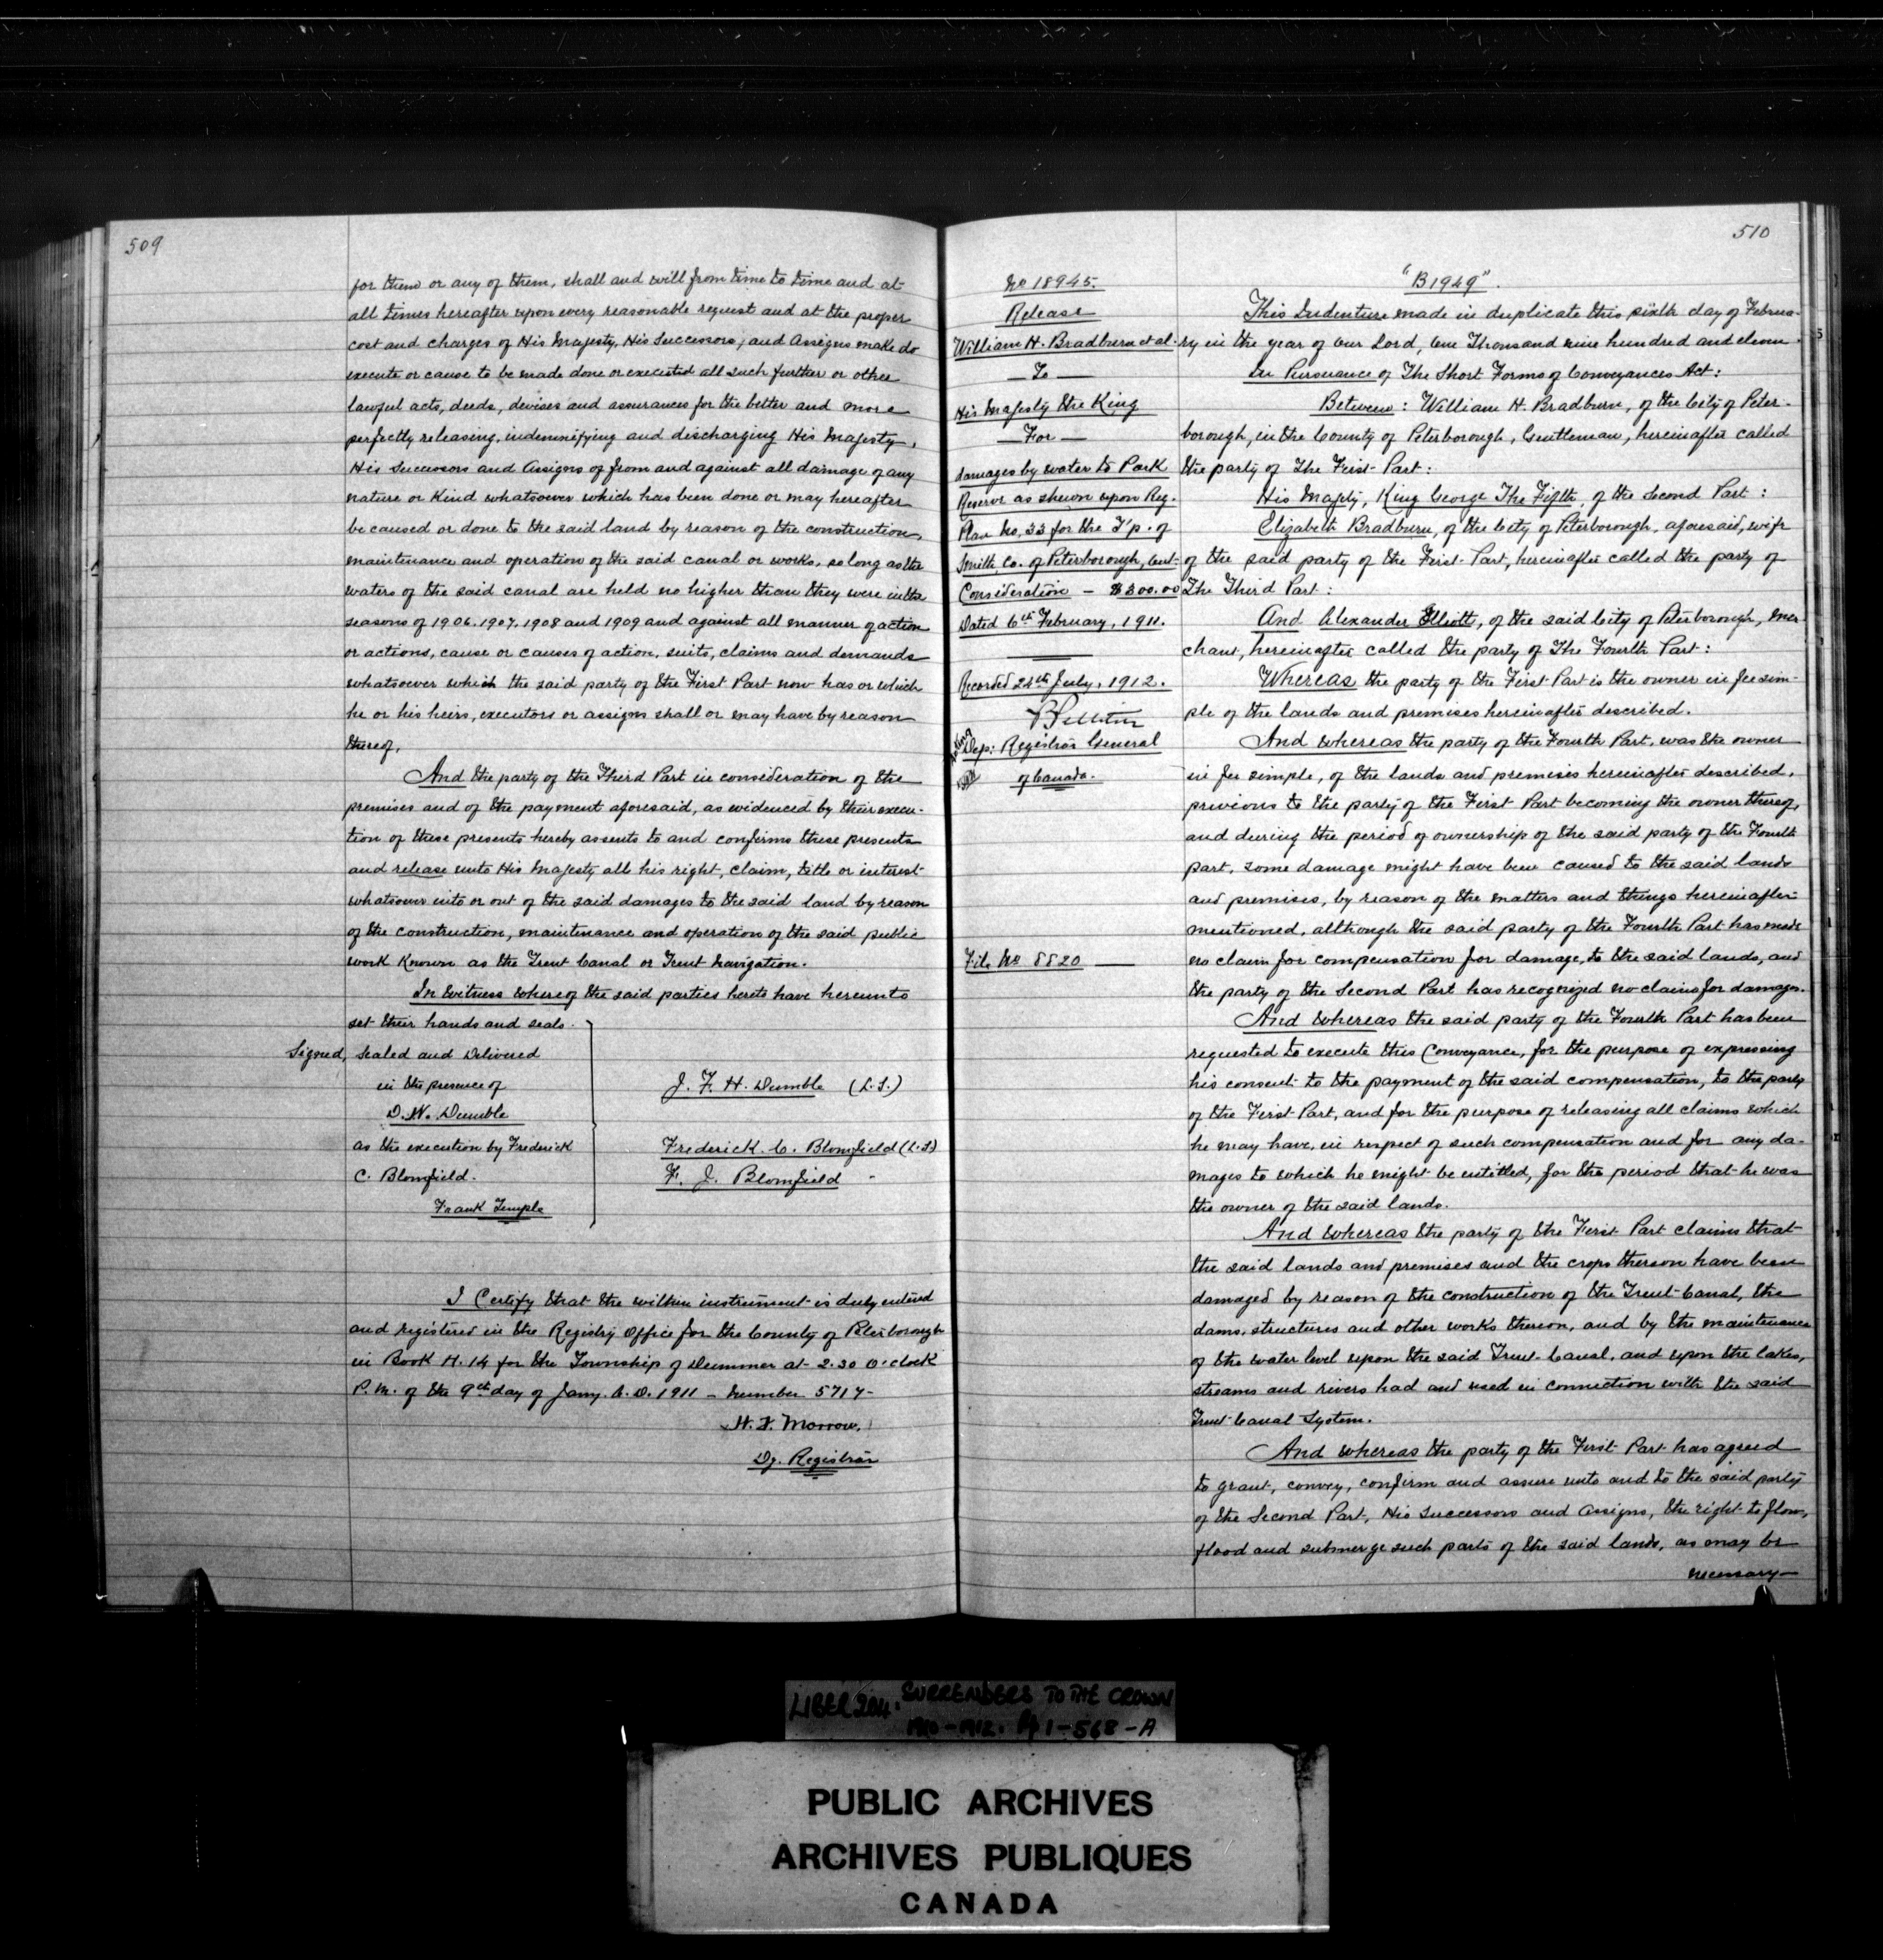 509
for them or any of them, shall and will from time to time and at
all times hereafter upon every reasonable request and at the proper
cost and charges of His Majesty, His Successors, and Assigns make do
execute or cause to be made done or executed all such further or other
lawful acts, deeds, devises and assurances for the better and more
perfectly releasing, indemnifying and discharging His Majesty,
His Successors and Assigns of from and against all damage of any
nature or Kind whatsoever which has been done or may hereafter
be caused or done to the said land by reason of the construction,
maintenance and operation of the said canal or works, so long as the
waters of the said canal are held no higher than they were in the
seasons of 1906. 1907. 1908 and 1909 and against all manner of action
or actions, cause or causes of action, suits, claims and demands
whatsoever which the said party of the First Part now has or which
he or his heirs, executors or assigns shall or may have by reason
thereof.
And the party of the Third Part in consideration of the
premises and of the payment aforesaid, as evidenced by their execu-
tion of these presents hereby assents to and confirms these presents
and release unto His Majesty all his right, claim, title or interest
whatsoever into or out of the said damages to the said land by reason
of the construction, maintenance and operation of the said public
work Known as the Trent Canal or Trent Navigation.
In witness whereof the said parties hereto have hereunto
set their hands and seals.
Signed, Sealed and Delivered
in the presence of
D. W. Dumble
as the execution by Frederick
C. Blomfield.
Frank Temple
J. F. H. Dumble (L.S.)
Frederick. C. Blomfield (L.S)
F. J. Blomfield "
I Certify that the within instrument is duly entered
and registered in the Registry Office for the County of Peterborough
in Book H. 14 for the Township of Dummer at 2.30 O'clock
P.M. of the 9th day of Jany. A.D. 1911 – Number 5717–
H. F. Morrow.
Dy. Registrar
510
No 18945.
Release
William H. Bradburn et al.
– To –
His Majesty the King
– For –
damages by water to Park
Reserve as shewn upon Reg.
Plan No. 33 for the T'p. of
Smith, Co. of Peterborough, Ont.
Consideration – $300.00
Dated 6th February, 1911.
Recorded 24th July, 1912.
Acting Dep: Registrar General
of Canada.
File No 8820
"B1949".
This Indenture made in duplicate this sixth day of Februa-
ry in the year of Our Lord, One Thousand nine hundred and eleven.
In Pursuance of The Short Forms of Conveyances Act:
Between: William H. Bradburn, of the City of Peter-
borough, in the County of Peterborough, Gentleman, hereinafter called
the party of The First Part:
His Majesty, King George The Fifth, of the Second Part:
Elizabeth Bradburn, of the City of Peterborough, aforesaid, wife
of the said party of the First Part, hereinafter called the party of
The Third Part:
And Alexander Elliott, of the said City of Peterborough, Mer-
chant, hereinafter called the party of The Fourth Part:
Whereas the party of the First Part is the owner in fee sim-
ple of the lands and premises hereinafter described.
And whereas the party of the Fourth Part, was the owner
in fee simple, of the lands and premises hereinafter described,
previous to the party of the First Part becoming the owner thereof,
and during the period of ownership of the said party of the Fourth
part, some damage might have been caused to the said lands
and premises, by reason of the matters and things hereinafter
mentioned, although the said party of the Fourth Part has made
no claim for compensation for damage, to the said lands, and
the party of the Second Part has recognized no claims for damages.
And whereas the said party of the Fourth Part has been
requested to execute this Conveyance, for the purpose of expressing
his consent to the payment of the said compensation, to the party
of the First Part, and for the purpose of releasing all claims which
he may have, in respect of such compensation and for any da-
mages to which he might be entitled, for the period that he was
the owner of the said lands.
And whereas the party of the First Part claims that
the said lands and premises and the crops thereon have been
damaged by reason of the construction of the Trent Canal, the
dams, structures and other works thereon, and by the maintenance
of the water level upon the said Trent Canal, and upon the lakes,
streams and rivers had and used in connection with the said
Trent Canal System.
And whereas the party of the First Part has agreed
to grant, convey, confirm and assure unto and to the said party
of the Second Part, His Successors and Assigns, the right to flow,
flood and submerge such parts of the said lands, as may be
necessary
LIBER 204: SURRENDERS TO THE CROWN
1910–1912. Pp 1–568–A
PUBLIC ARCHIVES
ARCHIVES PUBLIQUES
CANADA